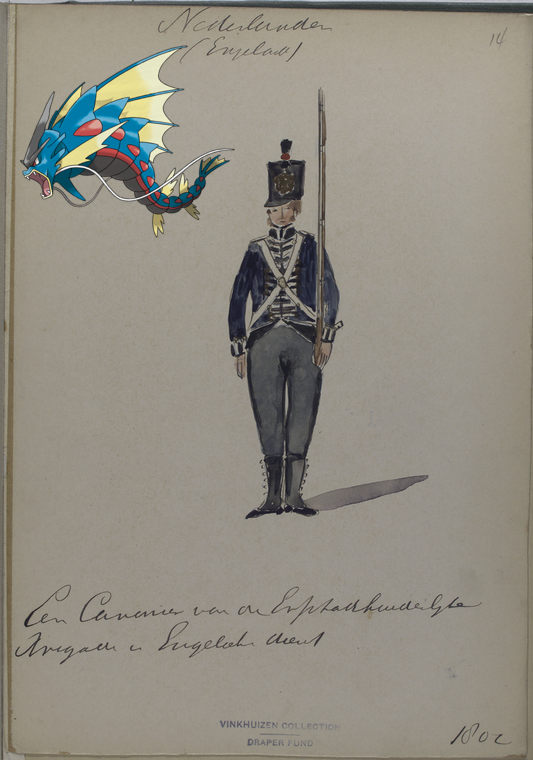 Nederlanden
(Engeland)
14
Een Canonier van de Erfstadhouderlyke
Brigade in Engelsche dienst
VINKHUIZEN COLLECTION
DRAPER FUND
1802